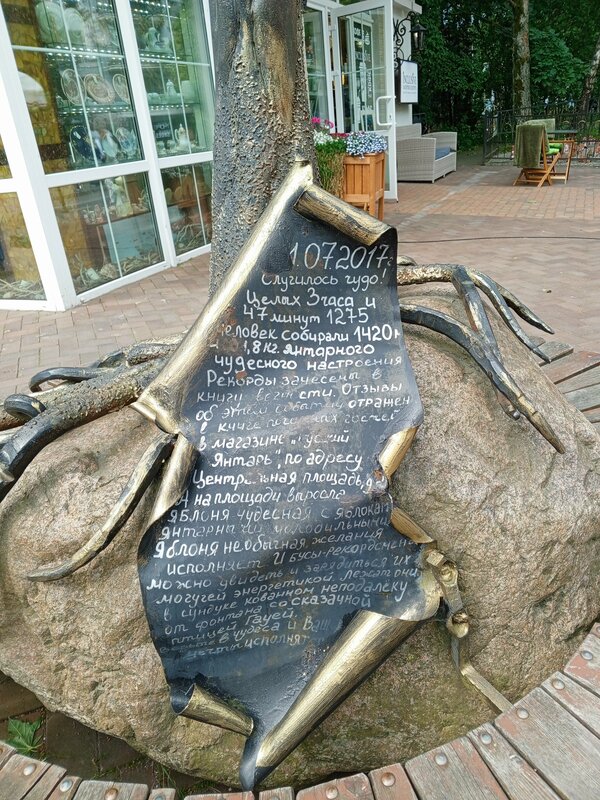 1.07.2017г
Случилось чудо.
Целых 3 часа и
47 минут 1275
человек собирали 1420м
1,8 кг. янтарного
чудесного настроения
Рекорды занесены в
книги Отзывы
об этом событии отражен
в книге почетных гостей
в магазине
Янтарь", по адресу
Центральная площадь,
А на площади выросла
яблоня чудесная с яблокам
янтарными молодильными
Яблоня необычная желания
исполняет. И бусы-рекордсмены
можно увидеть и зарядиться их
могучей энергетикой. Лежат они
в сундуке кованном неподалеку
от фонтана со сказачной
птицей Гауей.
верьте в чудеса и Ваш
мечты исполнят